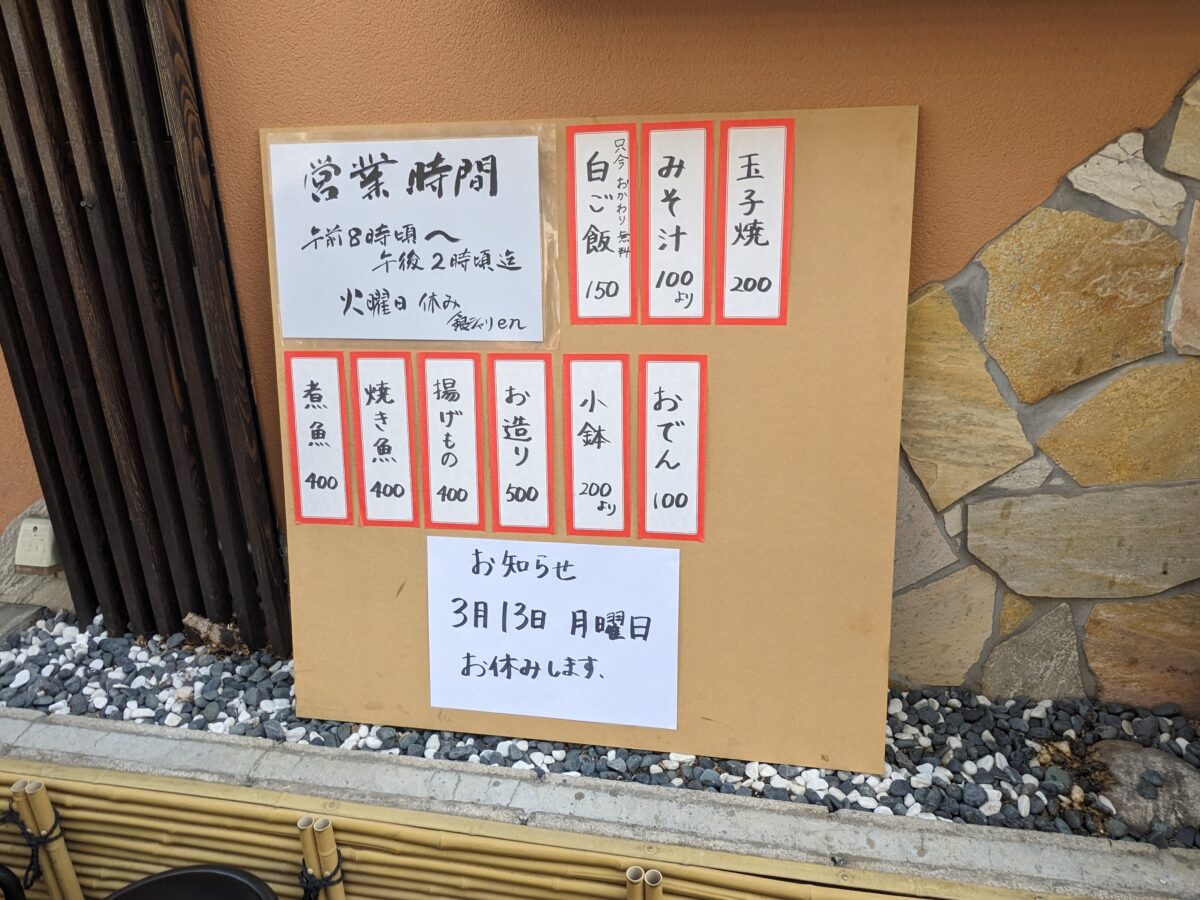 営業時間
午前8時頃〜
午後2時頃迄
火曜日 休み
銀シャリen
玉子焼
200
みそ汁
100より
只今 おかわり 無料
白ご飯
150
おでん
100
小鉢
200より
お造り
500
揚げもの
400
焼き魚
400
煮魚
400
お知らせ
3月13日 月曜日
お休みします、